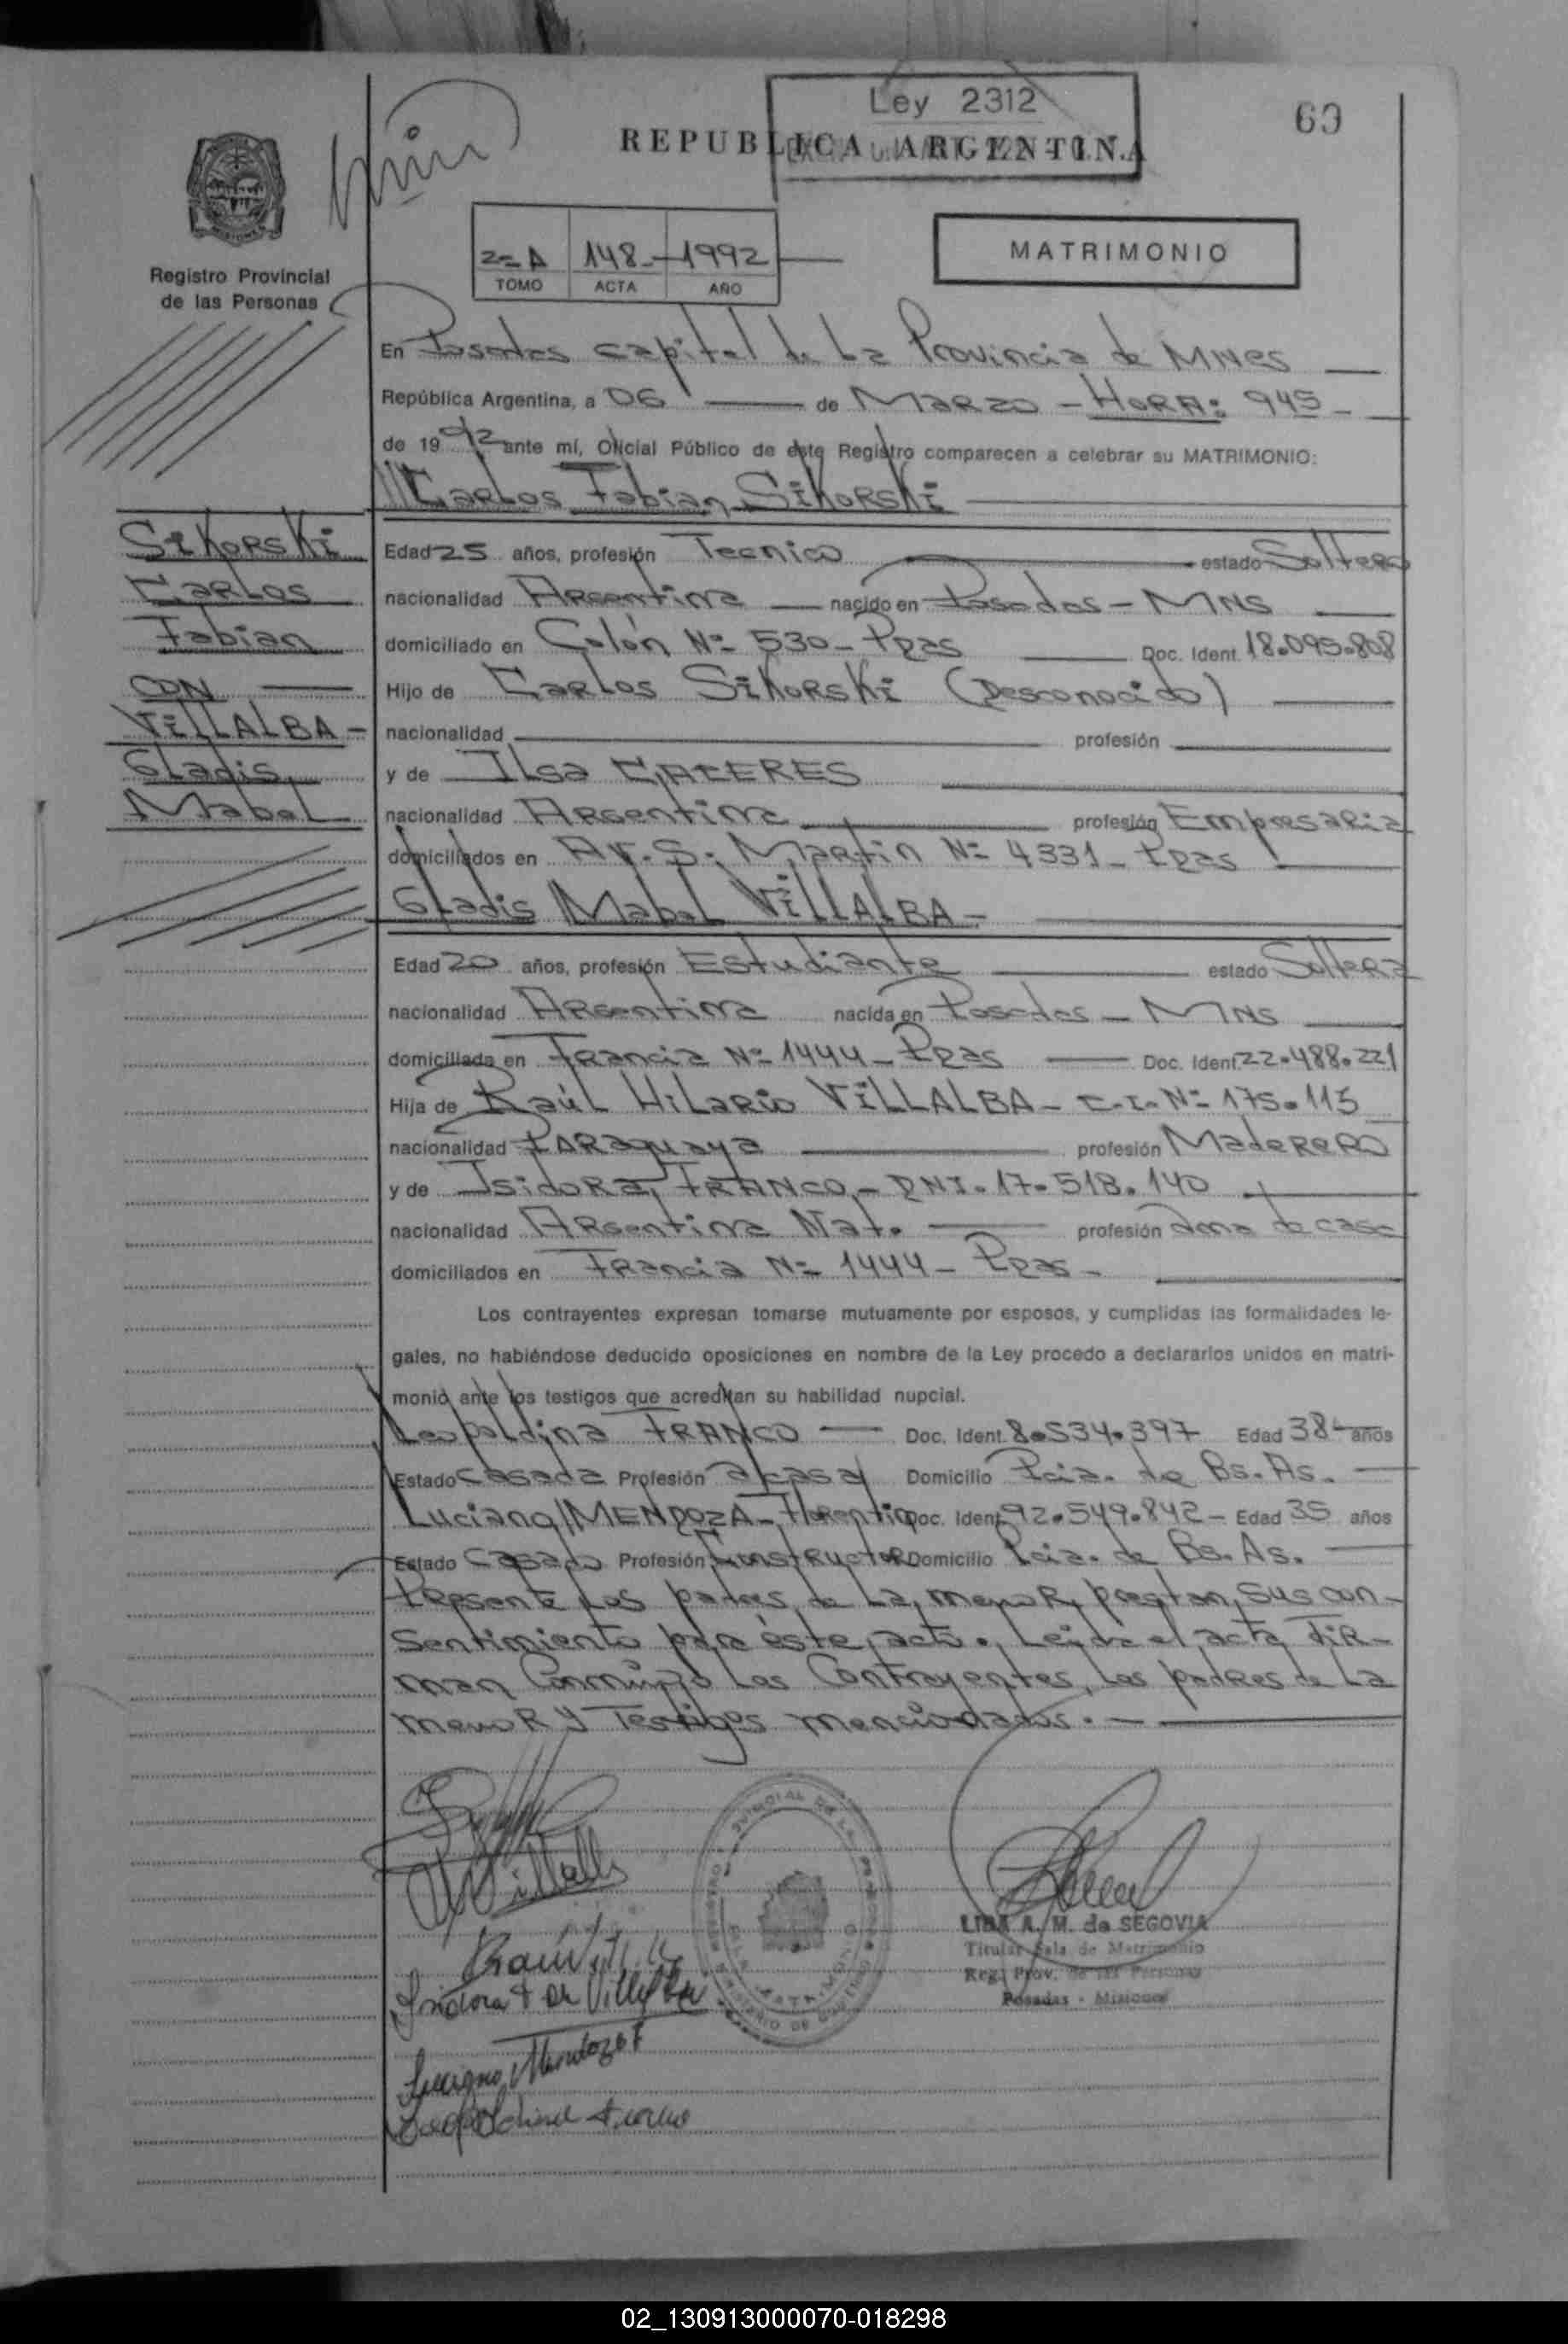 Ley 2312
REPUBLICA ARGENTINA
60
Registro Provincial
de las Personas
2=A 148- 1992
TOMO ACTA AÑO
MATRIMONIO
En Posadas capital de La Provincia de MNes
República Argentina, a 06 de MARZO - HORA: 945-
de 1992 ante mí, Oficial Público de este Registro comparecen a celebrar su MATRIMONIO:
Carlos Fabian SiKorsKi
SiKorsKi
Carlos
Fabian
CON
ViLLALBA-
Gladis
Mabel
Edad 25 años, profesión Tecnico estado Soltero
nacionalidad Argentina nacido en Posadas - MNS
domiciliado en Colón Nº 530- Pdas Doc. Ident. 18.095.808
Hijo de Carlos SiKorsKi (Desconocido)
nacionalidad profesión
y de ILsa CACERES
nacionalidad Argentina profesión Empresaria
domiciliados en Av. S. Martin Nº 4331- Pdas
Gladis Mabel ViLLALBA-
Edad 20 años, profesión Estudiante estado Soltera
nacionalidad Argentina nacida en Posadas - MNS
domiciliada en Francia Nº 1444- Pdas Doc. Ident. 22.488.221
Hija de Raúl Hilario ViLLALBA- C.I. Nº 175.115
nacionalidad Paraguaya profesión Maderero
y de Isidora FRANCO- DNI. 17.518.140
nacionalidad Argentina Nat. profesión ama de casa
domiciliados en Francia Nº 1444- Pdas-
Los contrayentes expresan tomarse mutuamente por esposos, y cumplidas las formalidades le-
gales, no habiéndose deducido oposiciones en nombre de la Ley procedo a declararlos unidos en matri-
monio ante los testigos que acreditan su habilidad nupcial.
Leopoldina FRANCO Doc. Ident. 8.534.397 Edad 38 años
Estado Casada Profesión a/casa Domicilio Pcia. de Bs. As.
Luciano MENDOZA- Florentin Doc. Ident. 92.549.842- Edad 35 años
Estado Casado Profesión Constructor Domicilio Pcia. de Bs. As.
Presente Los padres de La menor, prestan sus con-
sentimiento para éste acto. Leída el acta FIR-
man Conmigo Los Contrayentes, Los padres de La
menor y Testigos mencionados.-
Isidora F de Villalba
Luciano Mendoza F
Leopoldina Franco
LIDA A. M. de SEGOVIA
Titular Sala de Matrimonio
Reg. Prov. de las Personas
Posadas - Misiones
02_130913000070-018298